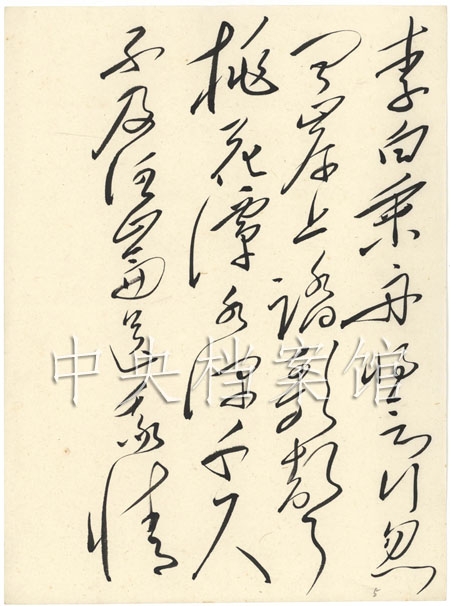 李白乘舟将欲行忽
闻岸上踏歌聲
桃花潭水深千尺
不及汪倫送我情
中央档案馆